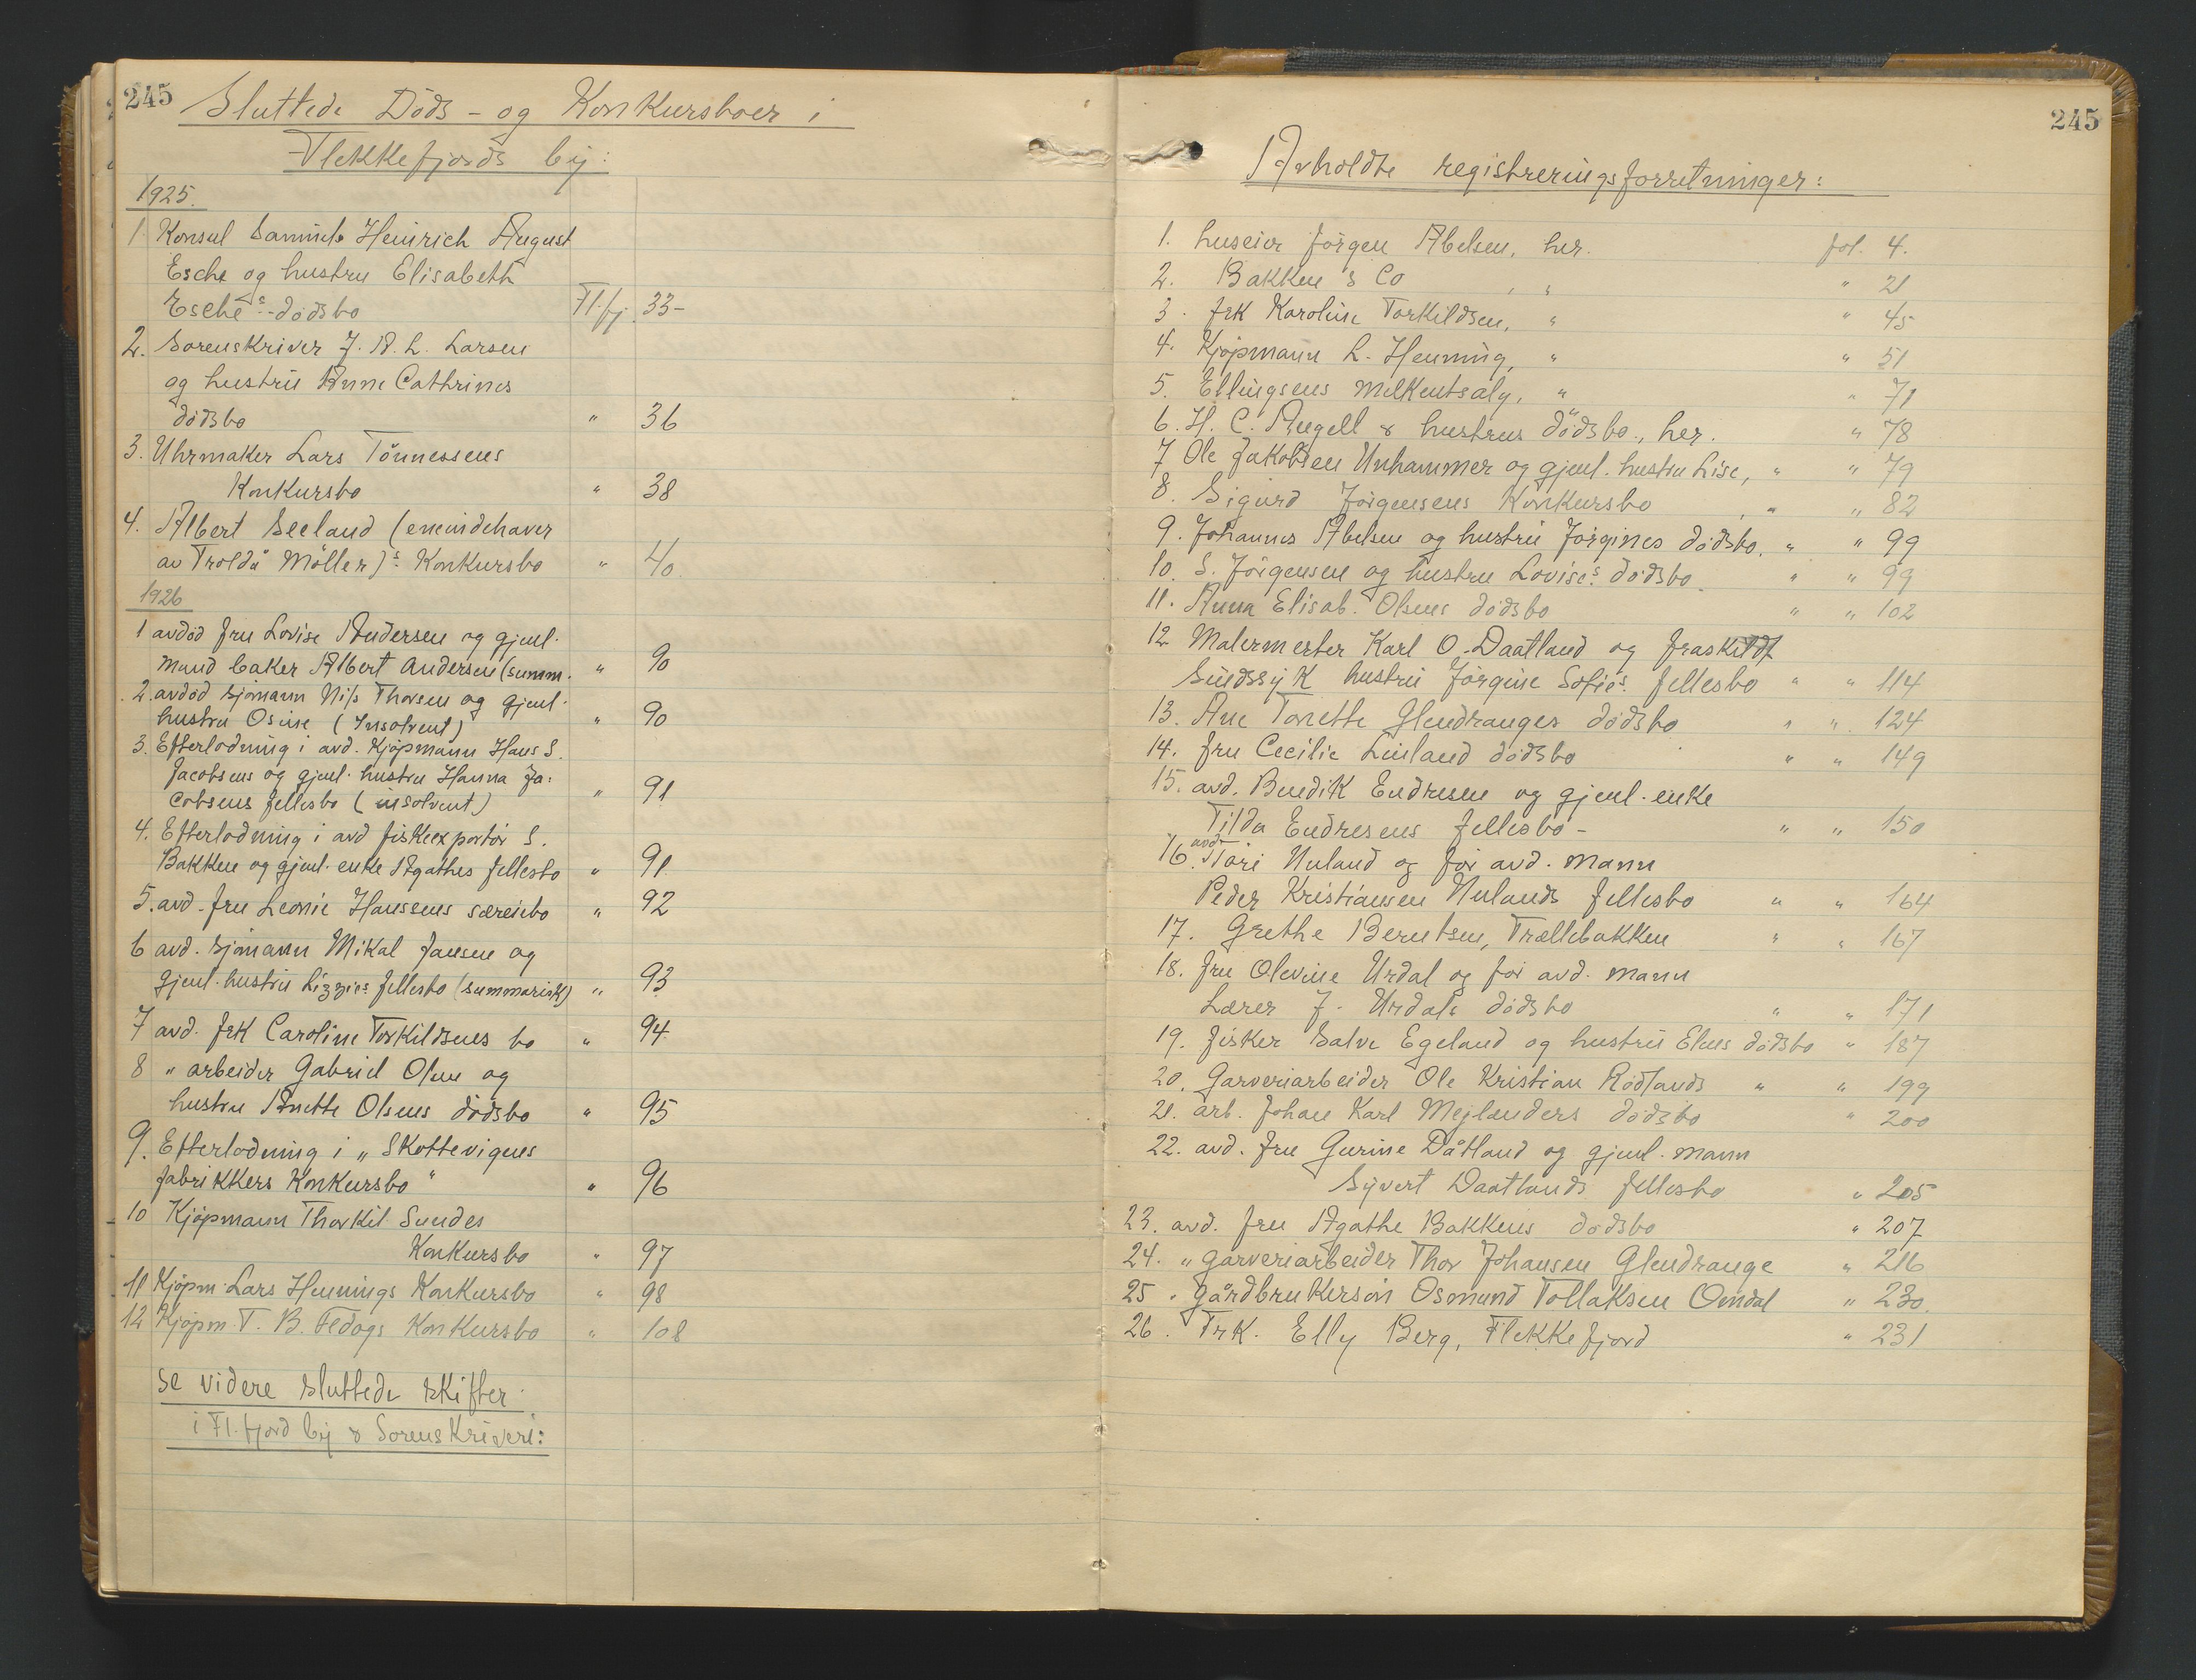 245
Sluttede Döds - og Konkursboer i
Flekkefjords by:
1925.
1 Konsul Samuels Heinrich August
Esche og hustru Elisabeth
Esche's dödsbo Fl.fj. 33-
2. Sorenskriver J. A. L. Larsen
og hustru Anne Cathrines
dödsbo " 36
3. Uhrmaker Lars Tönnessens
Konkursbo " 38
4. Albert Seeland (eneindehaver
av Troldå Möller)s Konkursbo " 40
1926
1 avdöd fru Lovise Andersen og gjenl.
mand baker Albert Andersen (summ. " 90
2. avdöd sjömann Nils Thorsen og gjenl.
hustru Osine (Insolvent) " 90
3. Efterlodning i avd. Kjöpmann Hans S.
Jacobsens og gjenl. hustru Hanna Ja-
cobsens fellesbo (insolvent) " 91
4. Efterlodning i avd fiskeexportör S.
Bakken og gjenl. enke Agathes fellesbo " 91
5. avd. fru Leonie Hanssens særeiebo " 92
6 avd. sjömann Mikal Jansen og
gjenl. hustru Lizzies fellesbo (summarisk) " 93
7 avd. frk Caroline Torkildsens bo " 94
8 " arbeider Gabriel Olsen og
hustru Anette Olsens dödsbo " 95
9. Efterlodning i „Skottevigens
fabrikkers Konkursbo" " 96
10 Kjöpmann Thorkil Sundes
Konkursbo " 97
11 Kjöpm. Lars Hennings Konkursbo " 98
12 Kjöpm. T. B. Fedogs Konkursbo " 108
se videre sluttede skifter
i Fl.fjord by & Sorenskriveri:
245
Avholdte registreringsforretninger:
1. huseier Jörgen Abelsen, her. fol. 4.
2. Bakken & Co , " " 21
3. frk Karoline Torkildsen, " " 45
4. Kjöpmann L. Henning, " " 51
5. Ellingsens melkeutsalg, " " 71
6. H. C. Augell & hustrus dödsbo., her. " 78
7 Ole Jakobsen Unhammer og gjenl. hustru Lise, " " 79
8. Sigurd Jörgensens Konkursbo , " " 82
9. Johannes Abelsen og hustru Jörgines dödsbo. " " 99
10. S. Jörgensen og hustru Lovise's dödsbo. " " 99
11. Anna Elisab. Olsens dödsbo " " 102
12 Malermester Karl O. Daatland og fraskildt
sindssyk hustru Jörgine Sofies fellesbo " " 114
13. Ane Tonette Glendranges dödsbo " " 124
14. fru Cecilie Linland dödsbo " " 149
15. avd. Bendik Endresen og gjenl. enke
Tilda Endresens fellesbo - " " 150
16. avd. Tori Nuland og för avd. mann
Peder Kristiansen Nulands fellesbo " " 164
17. Grethe Berntsen, Trællebakken " " 167
18. fru Olevine Urdal og för avd. mann
Lærer J. Urdals dödsbo " " 171
19. fisker Salve Egeland og hustru Elens dödsbo " 187
20. Garveriarbeider Ole Kristian Rödlands " " 199
21. arb. Johan Karl Mejlænders dödsbo " 200
22. avd. fru Gurine Dåtland og gjenl. mann
Syvert Daatlands fellesbo " 205
23. avd. fru Agathe Bakkens dödsbo " 207
24. " garveriarbeider Thor Johansen Glendrange " 216
25 " gårdbrukersön Osmund Tollaksen Omdal " 230.
26. Frk. Elly Berg, Flekkefjord " 231